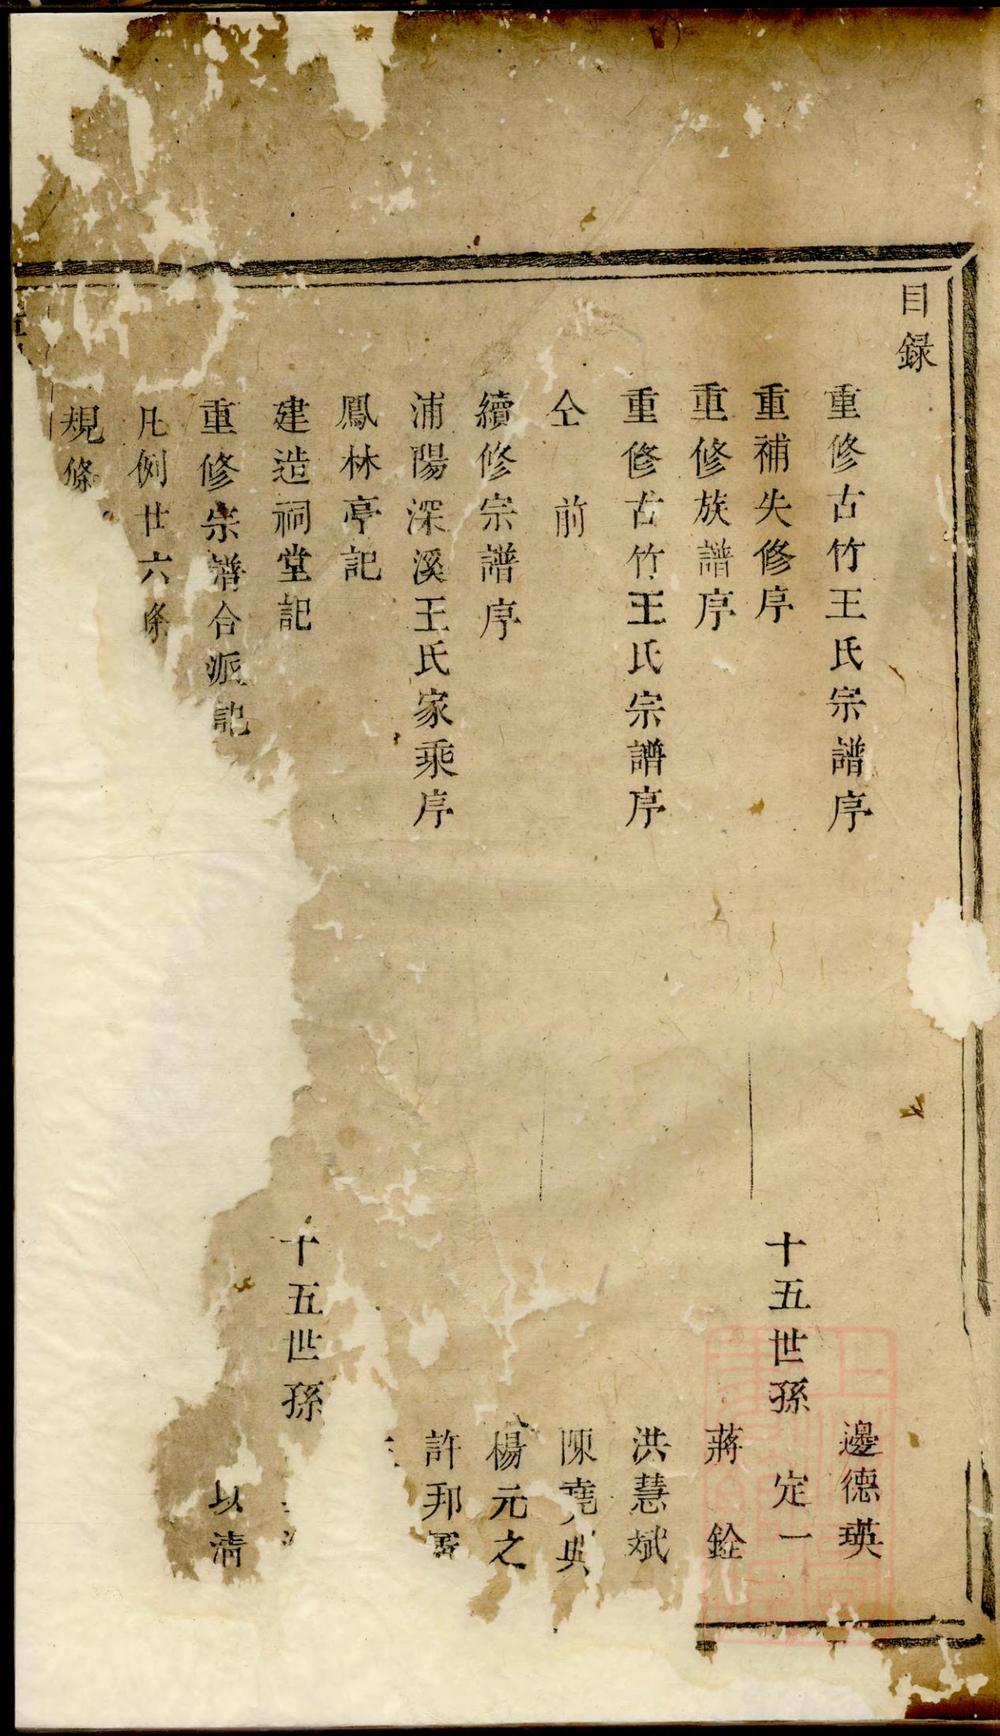 目録
重修古竹王氏宗譜序 邊德瑛
重補失修序 十五世孫 定一
重修族譜序 蔣銓
重修古竹王氏宗譜序 洪慧斌
仝前 陳堯典
續修宗譜序 楊元之
浦陽深溪王氏家乘序 許邦
鳳林亭記
建造祠堂記 十五世孫
重修宗譜合派記 以清
凡例廿六條
規條